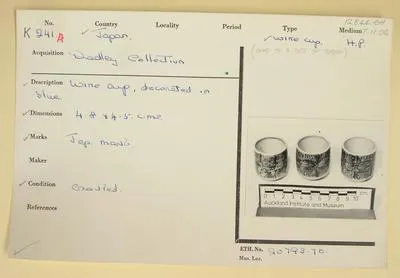 No. Country Locality Period Type Medium
K 241 A Japan. Wine cup, H.P
(one of a set of three)
Acquisition Dadley Collection
Description Wine cup, decorated in
blue.
Dimensions 4.8 x 4.5 cms
Marks Jap mark.
Maker
Condition
References
0 1 2 3 4 5 6 7 8 9 10 cm
Auckland Institute and Museum
ETH. No.
Mus. Loc.